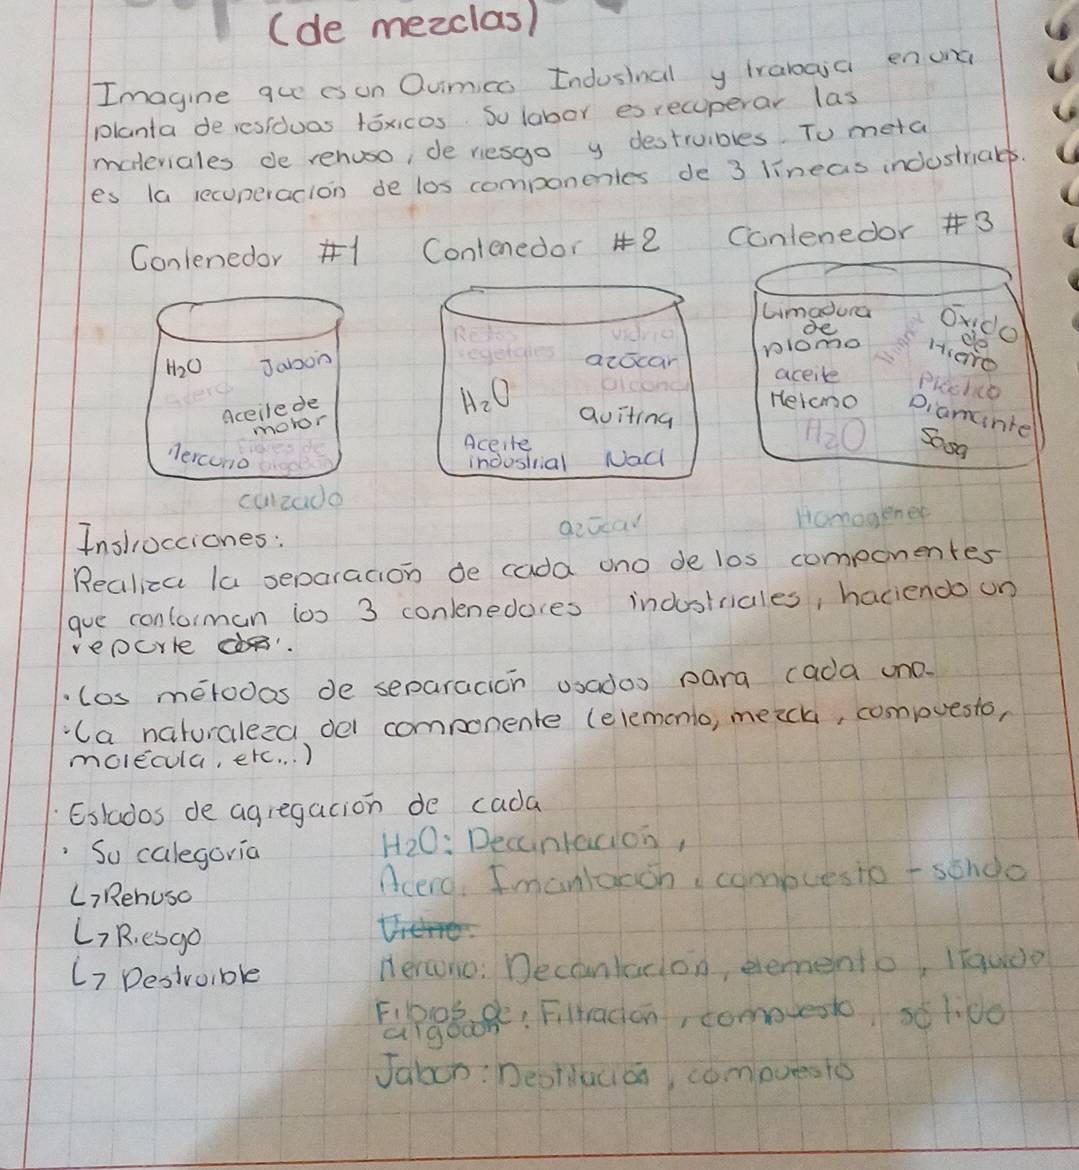 (de mezclas)
Imagine que es un Químico Industrial y trabaja en una
planta de residuos tóxicos. Su labor es recuperar las
materiales de renuso, de riesgo y destruibles. Tu meta
es la recuperación de los componentes de 3 líneas industriales.
Contenedor #1 Contenedor #2 Contenedor #3
H2O Jabón
acero
Aceite de
motor
Mercurio Fibras de
algodón
Restos vidrio
vegetales azúcar
H2O
quiting
Aceite
industrial Nacl
Limadura Óxido
de de
plomo Hierro
aceite
Helemo Diamante
H2O Sosa
calzado azúcar Homogenea
Instrucciones:
Realiza la separación de cada uno de los componentes
que conforman los 3 contenedores industriales, haciendo un
reporte de:
• Los métodos de separación usados para cada uno
• La naturaleza del componente (elemento, mezcla, compuesto,
molécula, etc...)
• Estados de agregación de cada
• Su categoría
↳ Renuso
↳ Riesgo
↳ Destruible
H2O: Decantación,
Acero. Imantación, compuesto - sólido
Mercurio: Decantación, elemento, líquido
Fibras de: Filtración, compuesto, sólido
algodón
Jabón: Destilación, compuesto